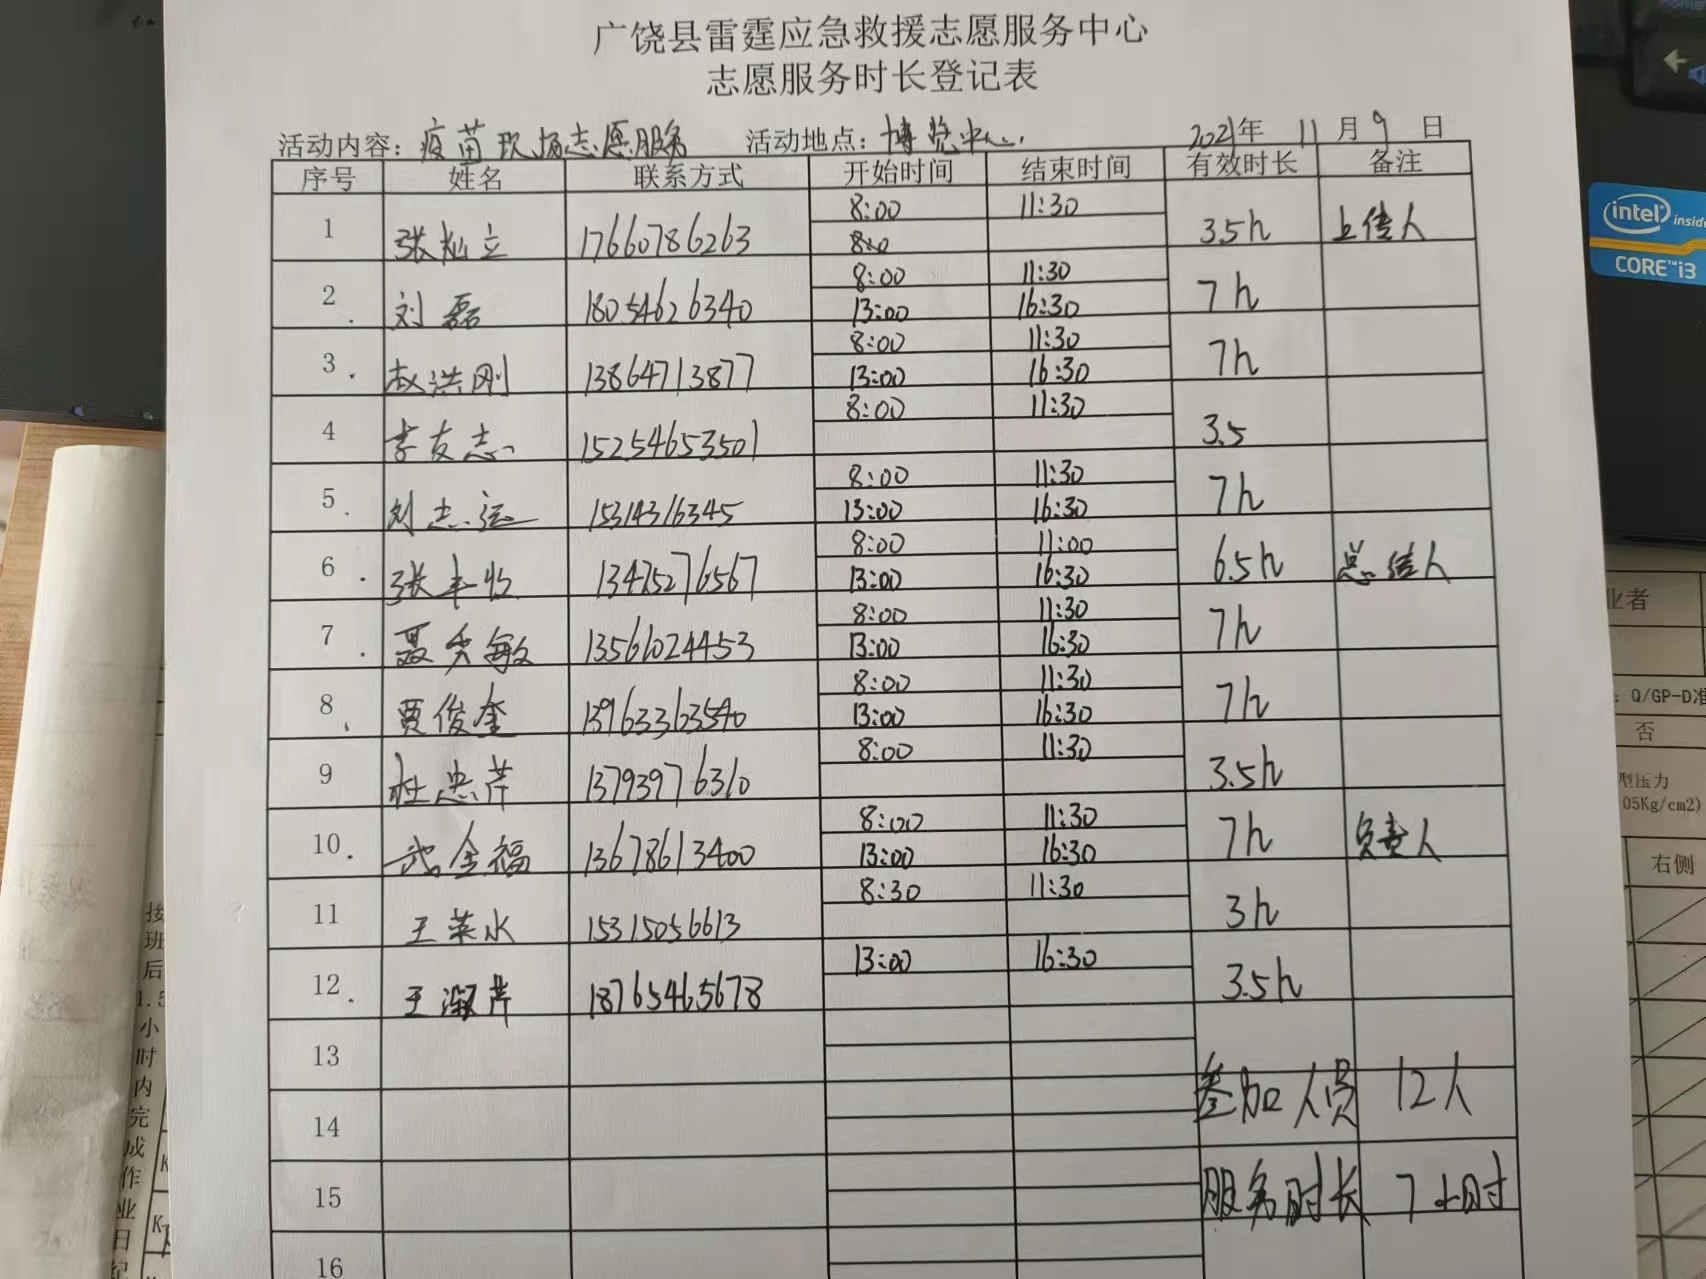 广饶县雷霆应急救援志愿服务中心
志愿服务时长登记表
活动内容：疫苗现场志愿服务 活动地点：博览中心 2021年 11月9日
序号 姓名 联系方式 开始时间 结束时间 有效时长 备注
1 张灿立 17660786263 8:00 11:30 3.5h 上传人
2 刘磊 18054626340 8:00 11:30 7h
13:00 16:30
3 赵洪刚 13864713877 8:00 11:30 7h
13:00 16:30
4 李友志 15254653501 8:00 11:30 3.5
5 刘志运 15314316345 8:00 11:30 7h
13:00 16:30
6 张丰收 13475276567 8:00 11:00 6.5h 总结人
13:00 16:30
7 聂秀敏 13561024453 8:00 11:30 7h
13:00 16:30
8 贾俊奎 13963363540 8:00 11:30 7h
13:00 16:30
9 杜忠芹 13793976310 8:00 11:30 3.5h
10 武金福 13678613400 8:00 11:30 7h 负责人
13:00 16:30
11 王荣水 15315056613 8:30 11:30 3h
12 王淑芹 18765465678 13:00 16:30 3.5h
13
14 参加人员 12人
15 服务时长 7小时
16
intel inside
CORE i3
业者
Q/GP-D准
否
型压力
05Kg/cm2)
右侧
接班后1.5小时内完成作业日纪